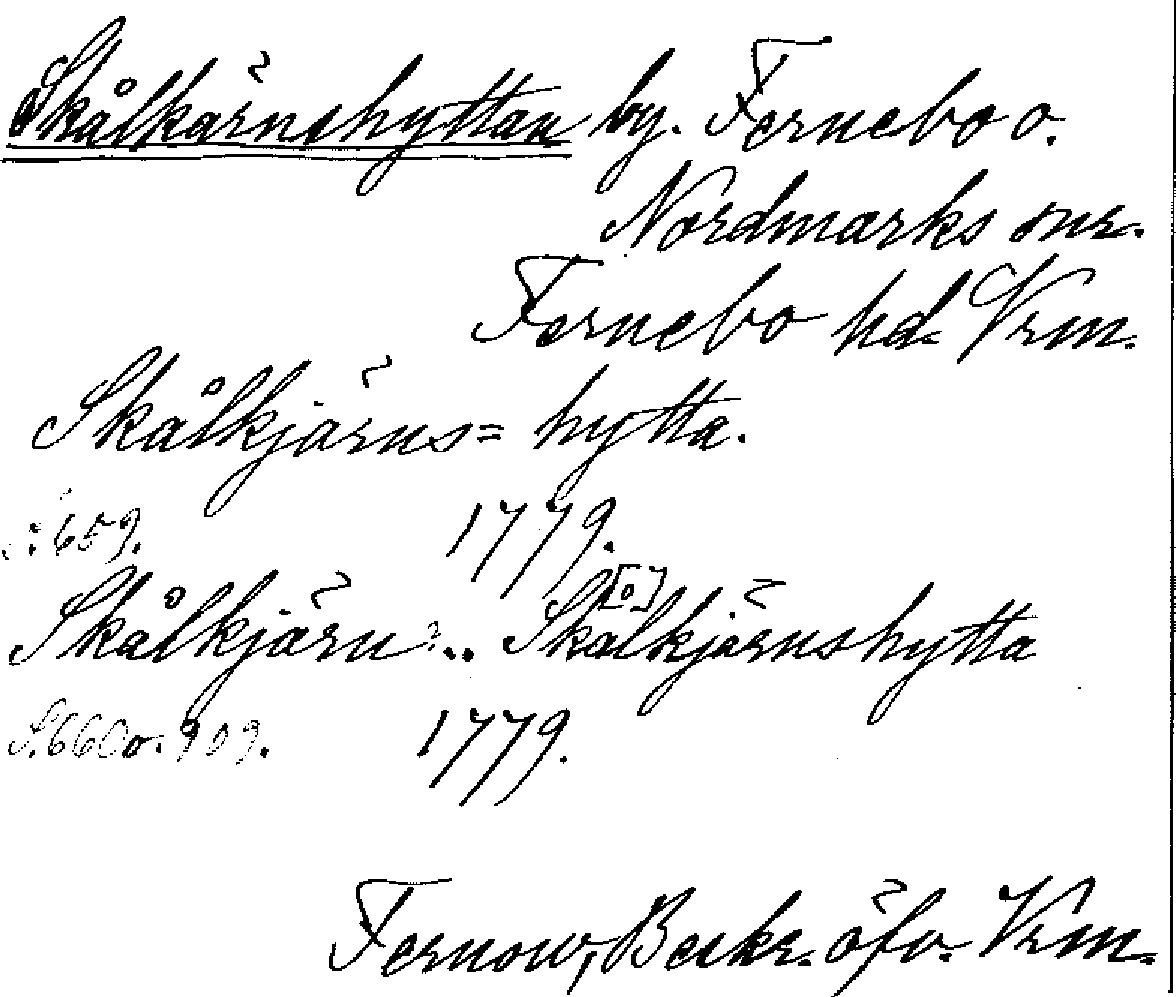 Skålkärnshyttan by. Fernebo o.
Nordmarks snr.
Fernebo hd. Vrm.
Skålkjärns= hytta.
s. 659. 1779.
Skålkjärn... Sk[å]lkjärnshytta
S. 660 o. 909. 1779.
Fernow, Beskr. öfv. Vrm.